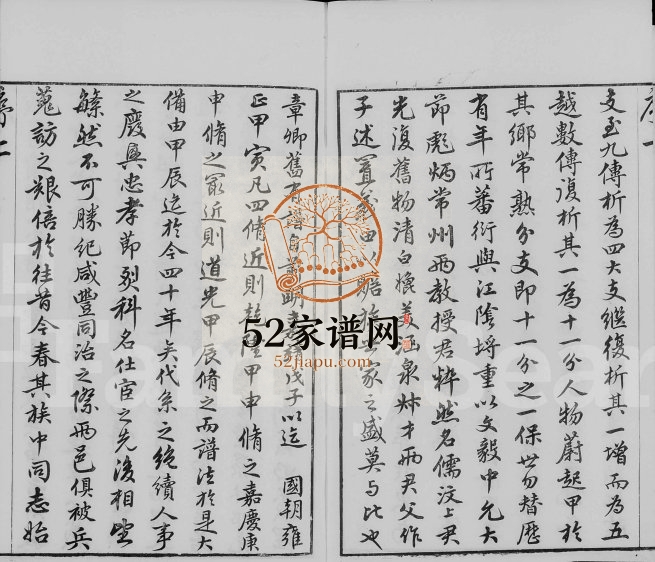 序一
支至九傳析為四大支繼復析其一增而為五
越數傳復析其一為十一分人物蔚起甲於
其鄉常熟分支即十一分之一保世勿替歷
有年所蕃衍與江陰埒重以文毅中允大
節彪炳常州兩教授君粹然名儒汶上尹
光復舊物清白煥美涵泉茂才兩尹父作
子述置 田以贍族 家之盛莫與比也
章卿舊有譜自前明 戊子以迄 國朝雍
正甲寅凡四脩近則乾隆甲申脩之嘉慶庚
申脩之最近則道光甲辰脩之而譜法於是大
備由甲辰迄於今四十年矣代系之絕續人事
之廢興忠孝節烈科名仕宦之先後相望
緜然不可勝紀咸豐同治之際兩邑俱被兵
蒐訪之艱倍於往昔今春其族中同志始
序二
52家谱网
52jiapu.com
FamilySearch